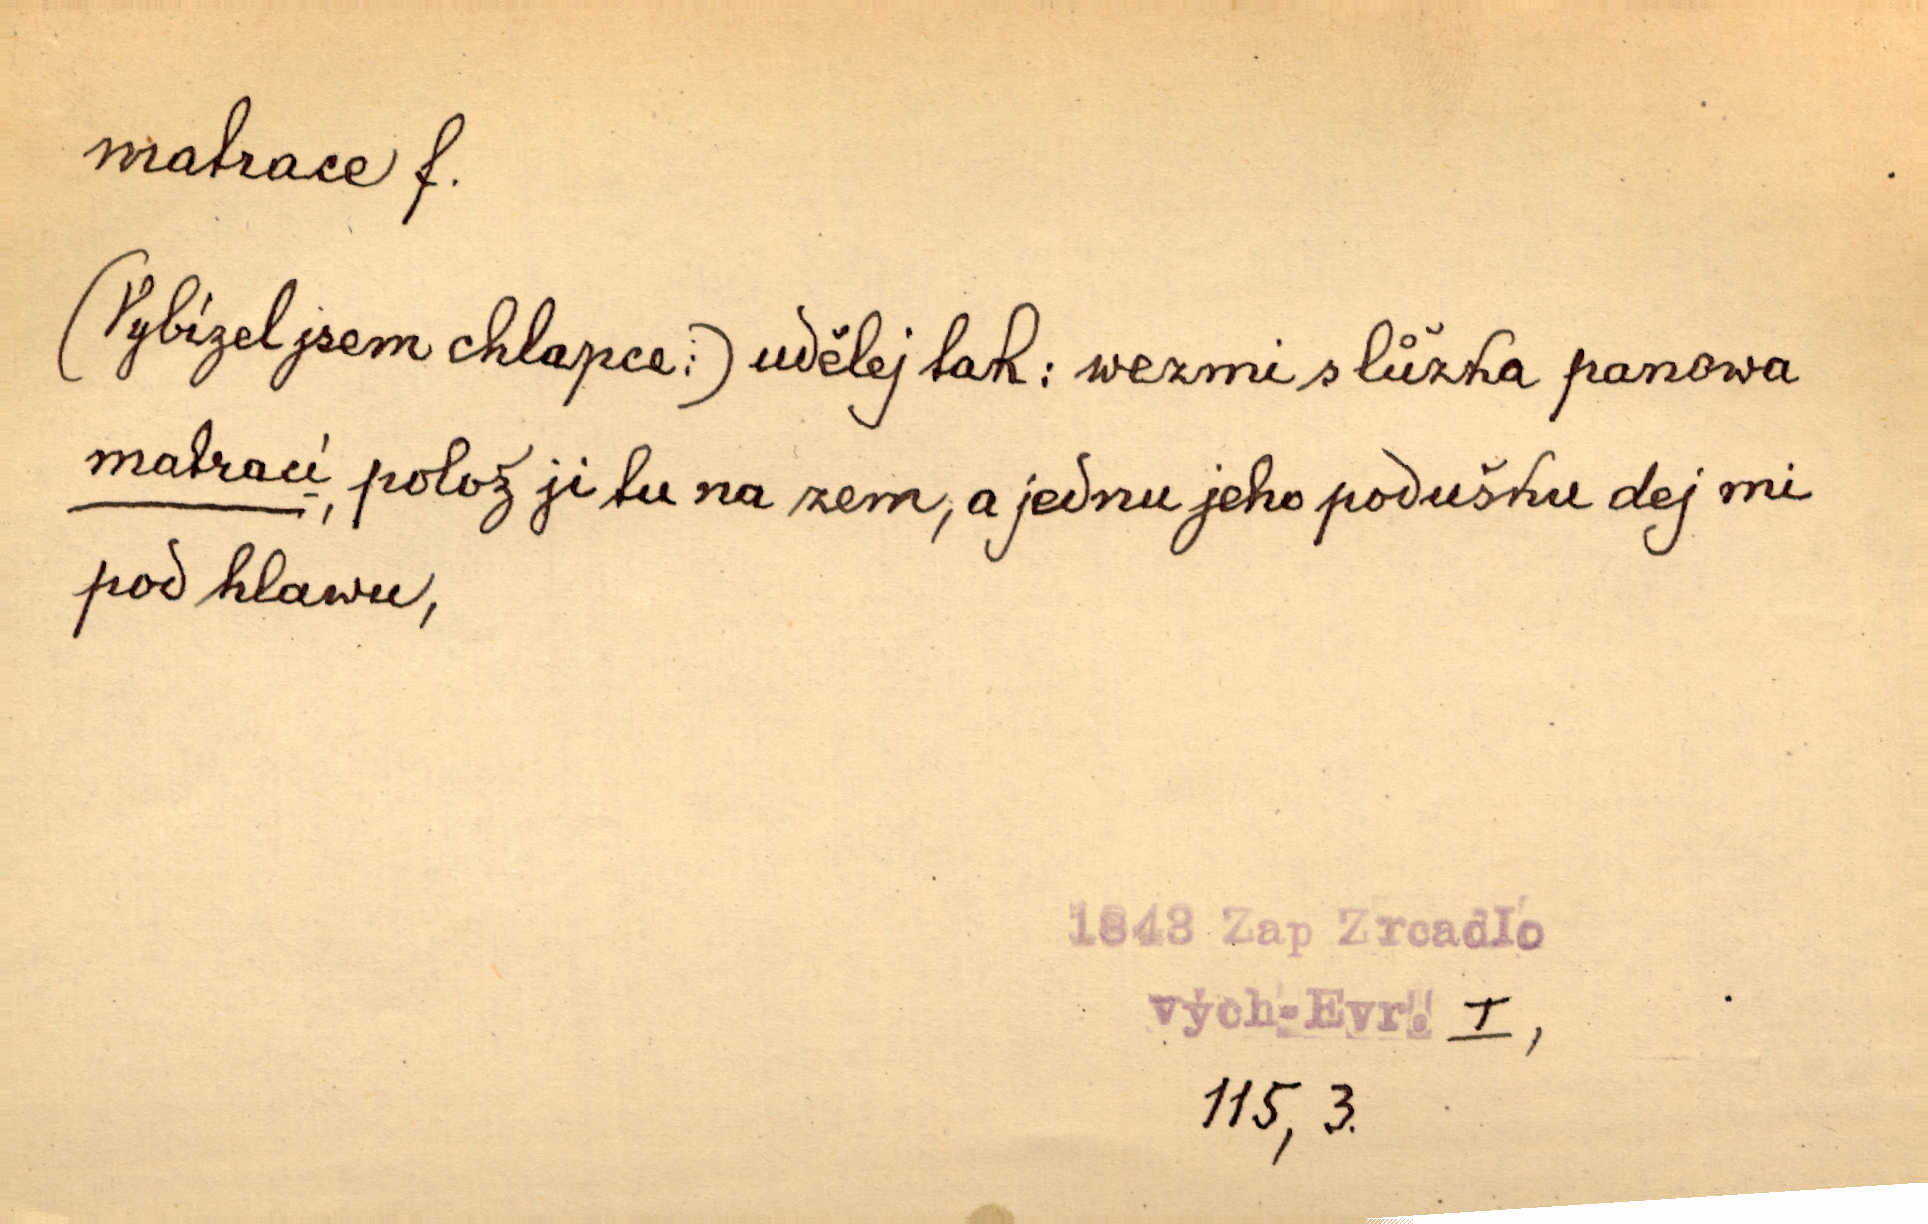 matrace f.
(Vybízel jsem chlapce:) udělej tak: wezmi s lůžka panowa
matrací, polož ji tu na zem, a jednu jeho podušku dej mi
pod hlawu,
1843 Zap Zrcadlo
vých-Evr. I,
115, 3.